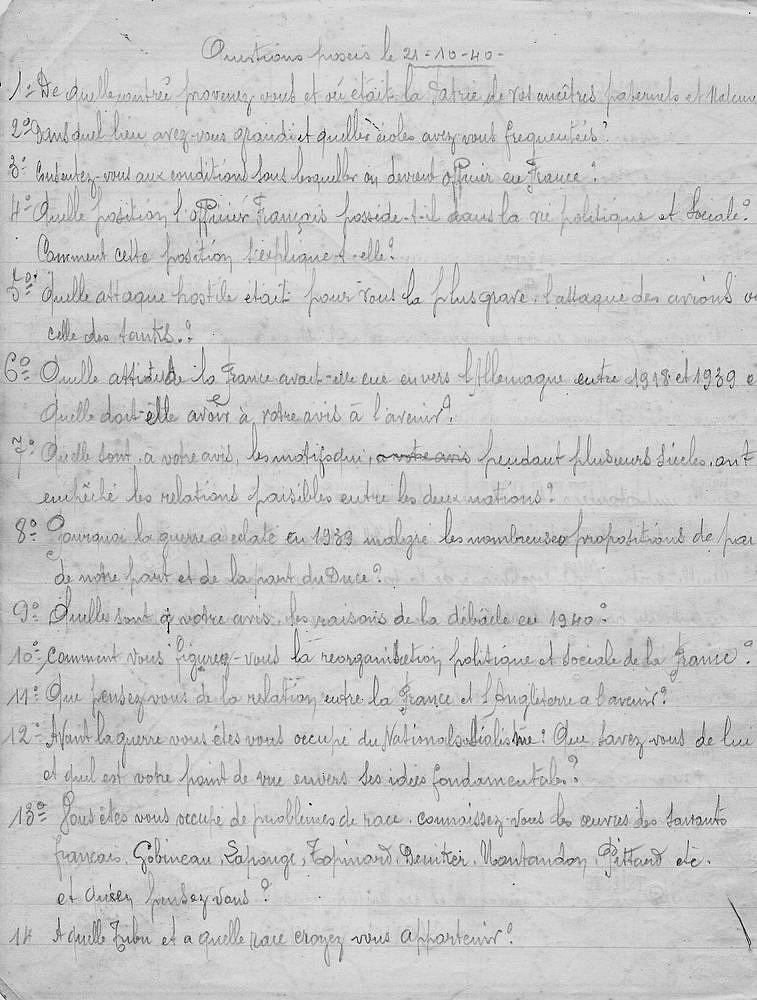 Questions posées le 21-10-40-
1º De quelle contrée provenez vous et où était la Patrie de vos ancêtres paternels et Mater
2º Dans quel lieu avez-vous grandi et quelles écoles avez vous frequentées?
3º aux conditions sous lesquelles on devient officier en France?
4º Quelle position l'officier Français possède-t-il dans la vie politique et Sociale?
Comment cette position s'explique-t-elle?
5º Quelle attaque hostile était pour vous la plus grave, l'attaque des avions ou
celle des tanks.?
6º Quelle attitude la France avait-elle eue envers l'Allemagne entre 1918 et 1939 e
Quelle doit-elle avoir à votre avis à l'avenir?
7º Quelle sont, a votre avis, les motifs qui, a votre avis pendant plusieurs siècles, ont
empêché les relations paisibles entre les deux nations?
8º Pourquoi la guerre a eclaté en 1939 malgré les nombreuses propositions de pai
de notre part et de la part du Duce?
9º Quelles sont à votre avis, les raisons de la débâcle en 1940?
10º Comment vous figurez-vous la reorganisation politique et sociale de la France?
11º Que pensez vous de la relation entre la France et l'Angleterre a l'avenir?
12º Avant la guerre vous êtes vous occupé du National-Sialisme? Que savez vous de lui
et quel est votre point de vue envers ses idées fondamentales?
13º Vous êtes vous occupé de problèmes de race, connaissez-vous les œuvres des Savants
français, Gobineau, Lapouge, Topinard, Deniker, Montandon, Pittard etc.
et qu'en pensez vous?
14 A quelle Tribu et a quelle race croyez vous appartenir?